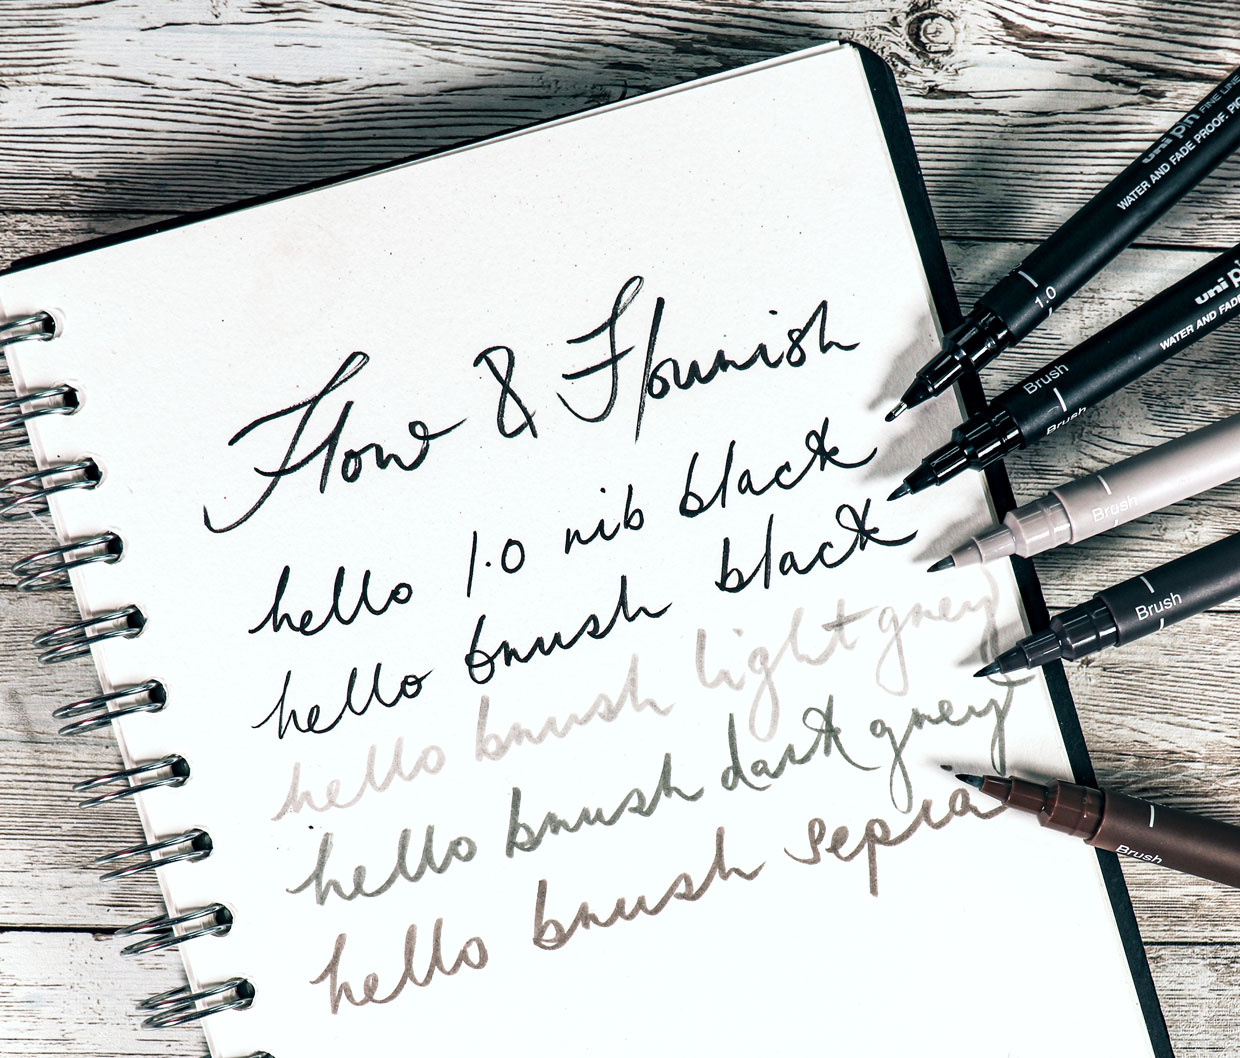 Flow & Flourish
hello 1.0 nib black
hello brush black
hello brush light grey
hello brush dark grey
hello brush sepia
uni pin FINE LINE
WATER AND FADE PROOF. PIG
1.0
uni pi
WATER AND FADE
Brush
Brush
Brush
Brush
Brush